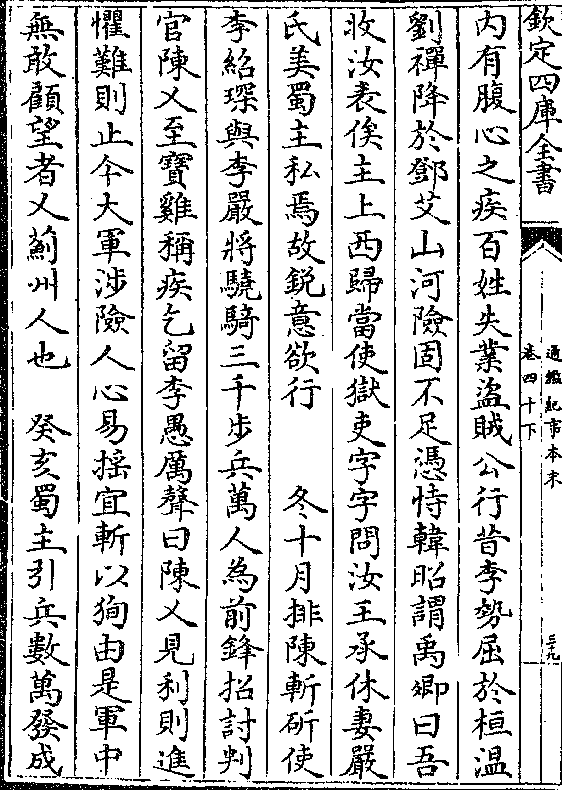 欽定四庫全書
通鑑紀事本末
卷四十下
三九
内有腹心之疾百姓失業盜賊公行昔李勢屈於桓溫
劉禪降於鄧艾山河險固不足憑恃韓昭謂禹卿曰吾
收汝表俟主上西歸當使獄吏字字問汝王承休妻嚴
氏美蜀主私焉故鋭意欲行　冬十月排陳斬斫使
李紹琛與李嚴將驍騎三千步兵萬人為前鋒招討判
官陳乂至寶雞稱疾乞留李愚厲聲曰陳乂見利則進
懼難則止今大軍涉險人心易揺宜斬以狥由是軍中
無敢顧望者乂薊州人也　癸亥蜀主引兵數萬發成